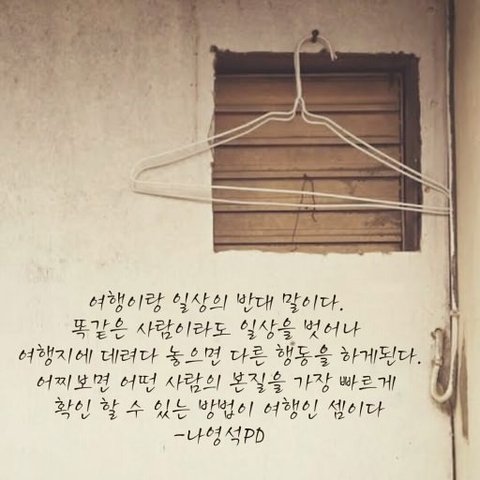 여행이랑 일상의 반대 말이다.
똑같은 사람이라도 일상을 벗어나
여행지에 데려다 놓으면 다른 행동을 하게된다.
어찌보면 어떤 사람의 본질을 가장 빠르게
확인 할 수 있는 방법이 여행인 셈이다
-나영석PD